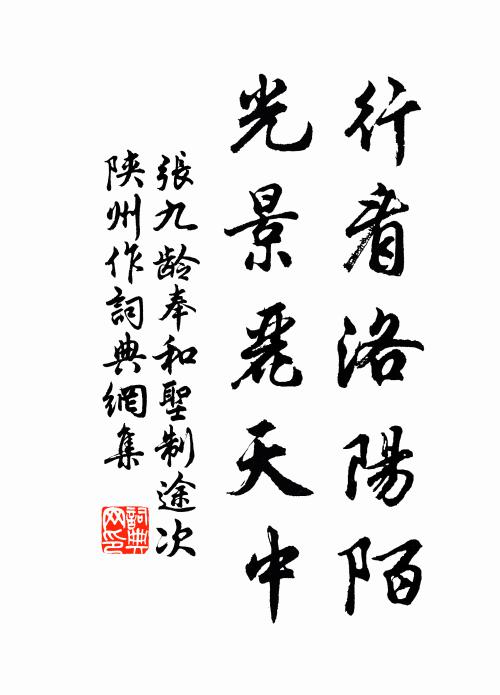 行看洛陽陌
光景麗天中
張九龄奉和聖制途次
陝州作詞典網集
詞典網印